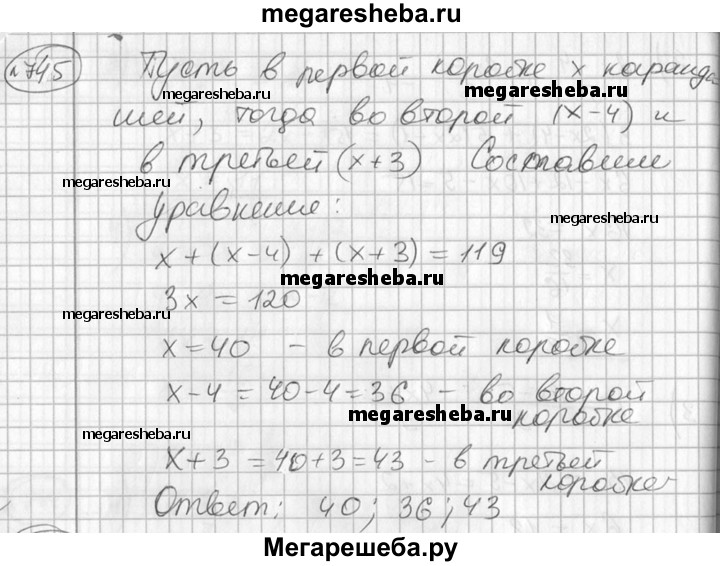 megaresheba.ru
№745 Пусть в первой коробке x каранда
megaresheba.ru megaresheba.ru
шей, тогда во второй (x-4) и
в третьей (x+3) Составим
megaresheba.ru
уравнение:
megaresheba.ru
x + (x-4) + (x+3) = 119
megaresheba.ru
3x = 120
megaresheba.ru
x = 40 - в первой коробке
x-4 = 40-4 = 36 - во второй
megaresheba.ru
коробке
megaresheba.ru
x+3 = 40+3 = 43 - в третьей
коробке
Ответ: 40; 36; 43
Мегарешеба.ру